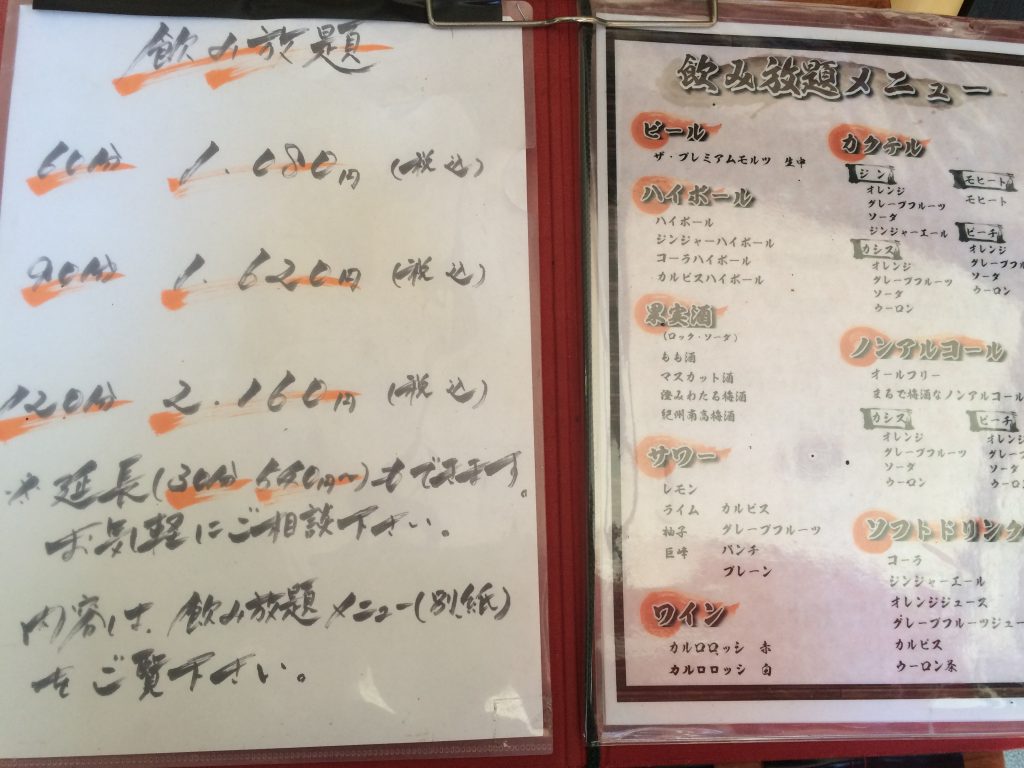 飲み放題
60分 1.080円 (税込)
90分 1.620円 (税込)
120分 2.160円 (税込)
※延長(30分 540円〜)もできます。
お気軽にご相談下さい。
内容は、飲み放題メニュー(別紙)
をご覧下さい。
飲み放題メニュー
ビール
ザ・プレミアムモルツ 生中
ハイボール
ハイボール
ジンジャーハイボール
コーラハイボール
カルピスハイボール
果実酒
(ロック・ソーダ)
もも酒
マスカット酒
澄みわたる梅酒
紀州南高梅酒
サワー
レモン
ライム カルピス
柚子 グレープフルーツ
巨峰 パンチ
プレーン
ワイン
カルロロッシ 赤
カルロロッシ 白
カクテル
ジン
オレンジ
グレープフルーツ
ソーダ
ジンジャーエール
カシス
オレンジ
グレープフルーツ
ソーダ
ウーロン
モヒート
モヒート
ピーチ
オレンジ
グレープフル
ソーダ
ウーロン
ノンアルコール
オールフリー
まるで梅酒なノンアルコール
カシス
オレンジ
グレープフルーツ
ソーダ
ウーロン
ピーチ
オレンジ
グレープ
ソーダ
ウーロン
ソフトドリンク
コーラ
ジンジャーエール
オレンジジュース
グレープフルーツジュー
カルピス
ウーロン茶